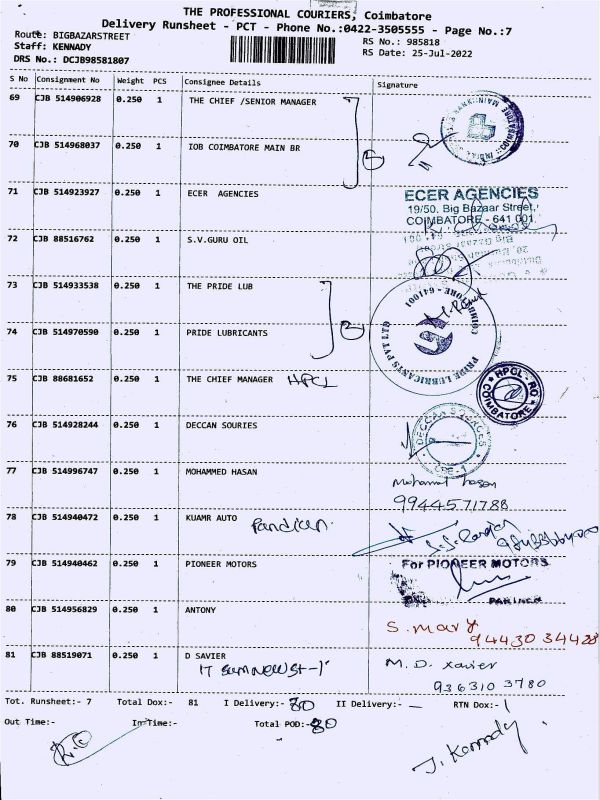 THE PROFESSIONAL COURIERS, Coimbatore
Delivery Runsheet - PCT - Phone No.:0422-3505555 - Page No.:7
Route: BIGBAZARSTREET
Staff: KENNADY
DRS No.: DCJB98581807
RS No.: 985818
RS Date: 25-Jul-2022
S No Consignment No Weight PCS Consignee Details Signature
69 CJB 514906928 0.250 1 THE CHIEF /SENIOR MANAGER
70 CJB 514968037 0.250 1 IOB COIMBATORE MAIN BR
71 CJB 514923927 0.250 1 ECER AGENCIES
ECER AGENCIES
19/50, Big Bazaar Street,
COIMBATORE - 641 001.
72 CJB 88516762 0.250 1 S.V.GURU OIL
73 CJB 514933538 0.250 1 THE PRIDE LUB
74 CJB 514970590 0.250 1 PRIDE LUBRICANTS
PRIDE LUBRICANTS PVT LTD
COIMBATORE - 641001
75 CJB 88681652 0.250 1 THE CHIEF MANAGER HPCL
HPCL - RO
COIMBATORE
76 CJB 514928244 0.250 1 DECCAN SOURIES
CBE-1
77 CJB 514996747 0.250 1 MOHAMMED HASAN
Mohamed hasan
9944571788
78 CJB 514940472 0.250 1 KUAMR AUTO Pandian
79 CJB 514940462 0.250 1 PIONEER MOTORS
For PIONEER MOTORS
PARTNER
80 CJB 514956829 0.250 1 ANTONY
S. mary
94430 34428
81 CJB 88519071 0.250 1 D SAVIER
M. D. xavier
936310 3780
Tot. Runsheet:- 7 Total Dox:- 81 I Delivery:- 80 II Delivery:- — RTN Dox:- 1
Out Time:- InTime:- Total POD:- 80
J. Kennady